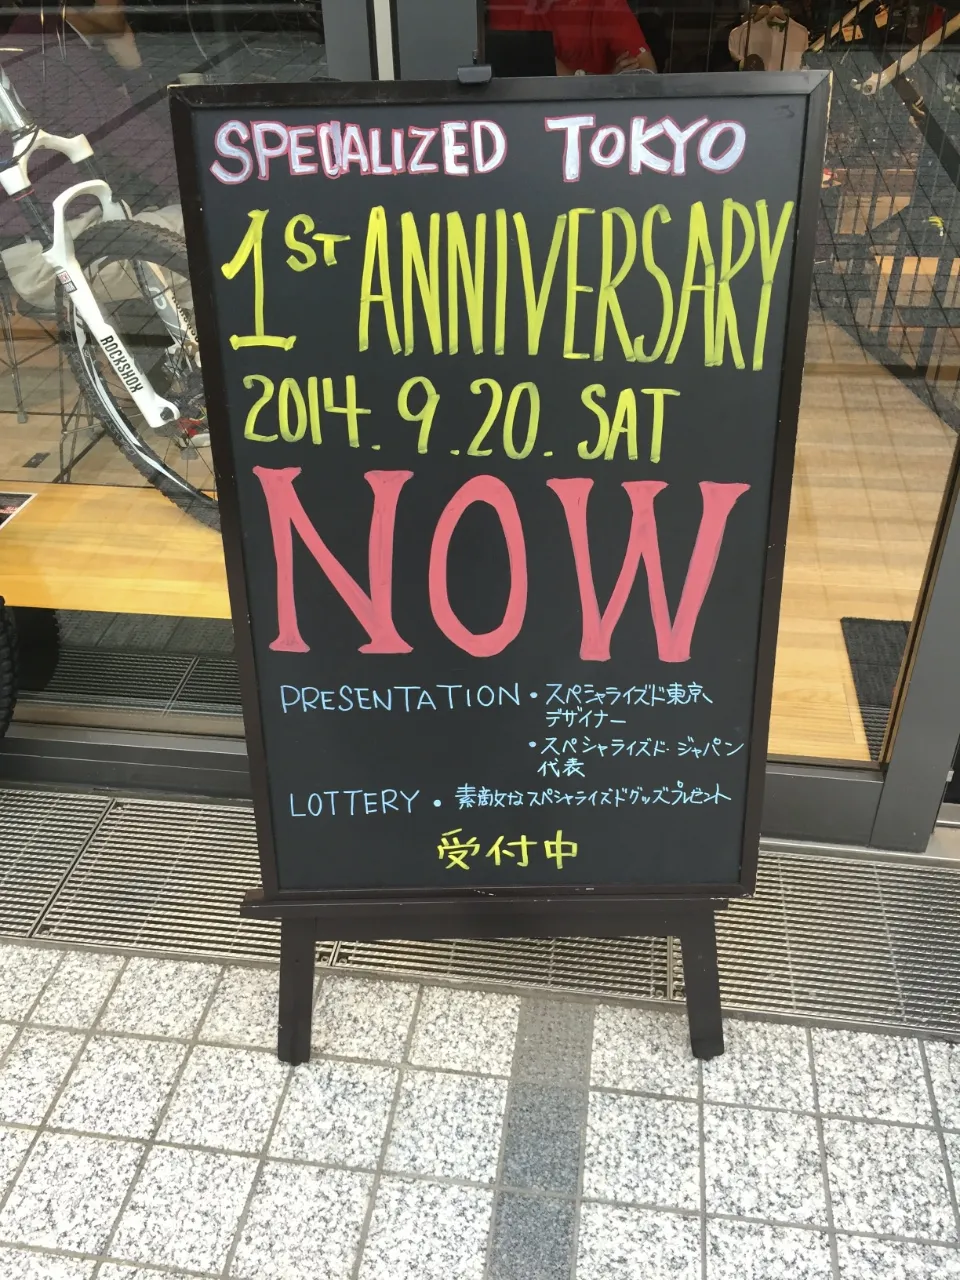 SPECIALIZED TOKYO
1ST ANNIVERSARY
2014. 9. 20. SAT
NOW
PRESENTATION • スペシャライズド東京、
デザイナー
• スペシャライズド・ジャパン
代表
LOTTERY • 素敵なスペシャライズドグッズプレゼント
受付中
ROCKSHOX